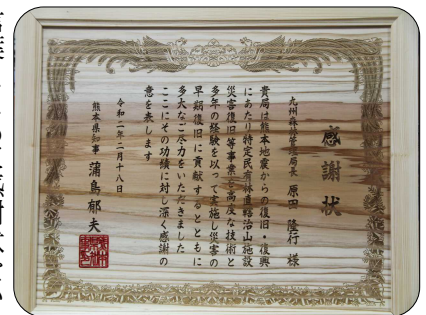 感謝状
九州森林管理局長 原田 隆行 様
貴局は熊本地震からの復旧・復興
にあたり特定民有林直轄治山施設
災害復旧等事業を高度な技術と
多年の経験を以って実施し災害の
早期復旧に貢献するとともに
多大なご尽力をいただきました
ここにその功績に対し深く感謝の
意を表します
令和二年二月十八日
熊本県知事 蒲島郁夫